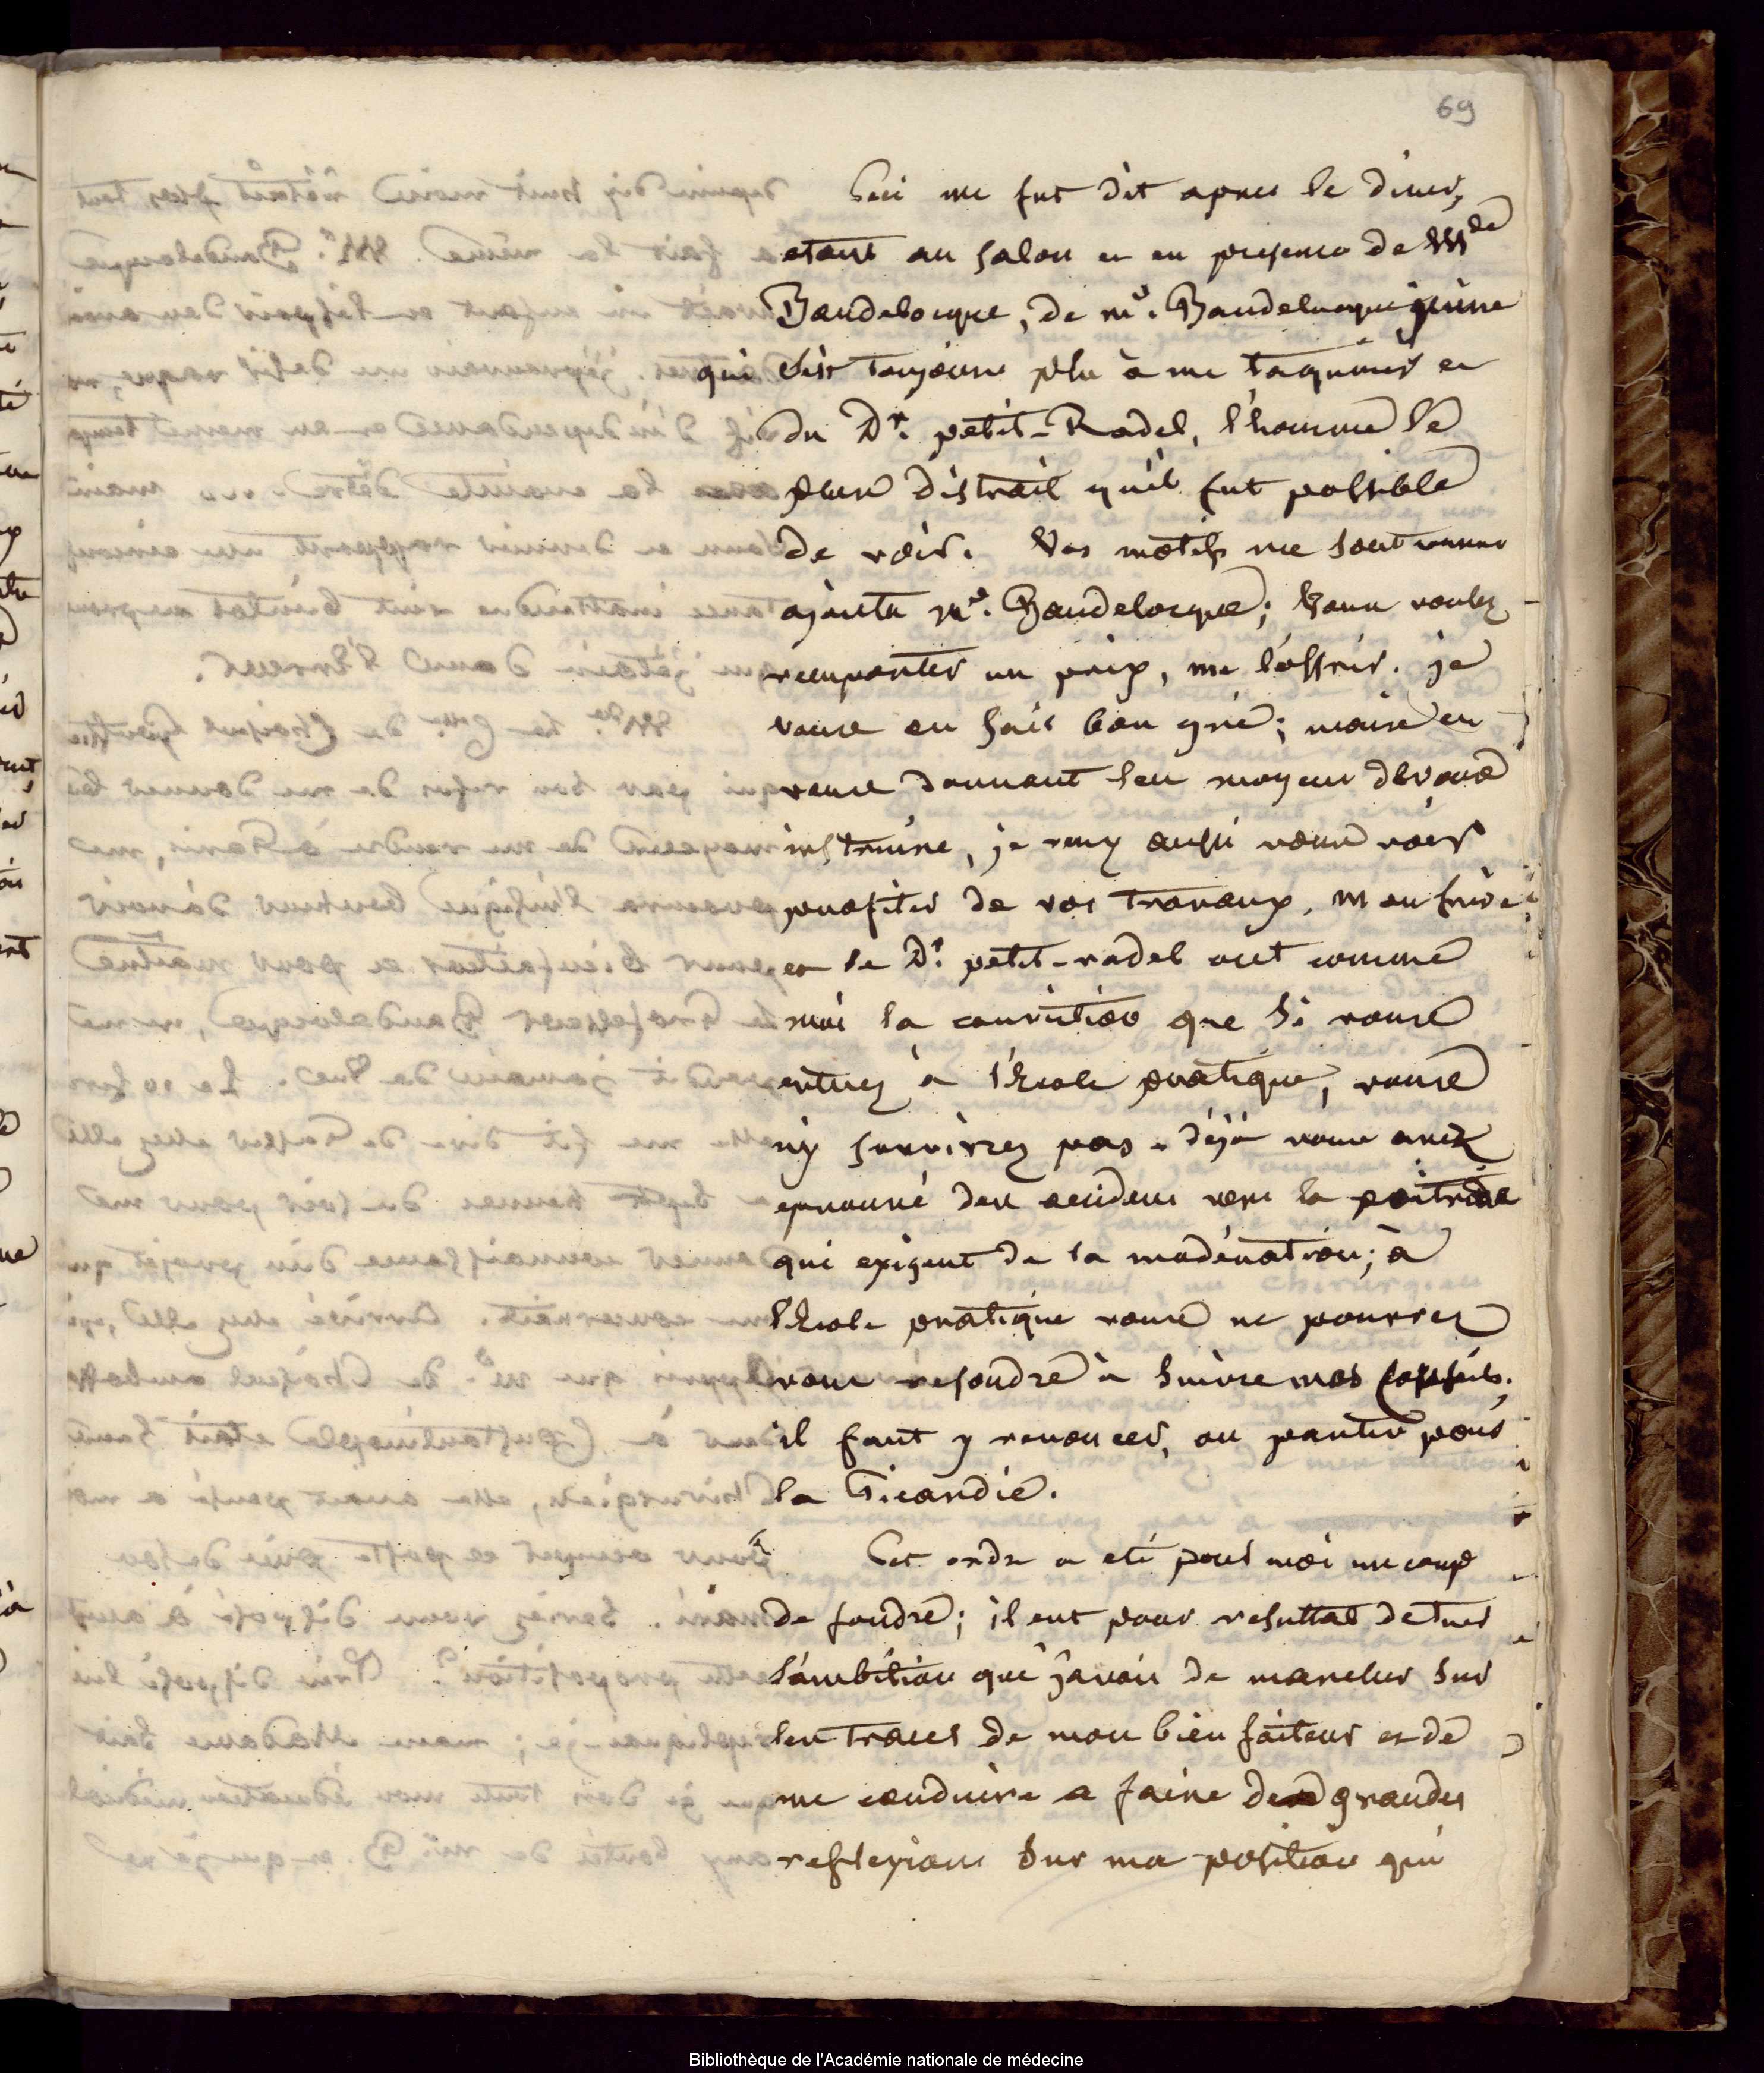 69
Ceci me fut dit apres le diner,
etant au salon et en presence de Mde
Baudelocque, de mr. Baudelocque jeune
qui s'est toujours plu à me taquiner et
du Dr. petit-Radel, l'homme le
plus distrait qu'il fut possible
de voir. Vos motifs me sont connus
ajouta Mr. Baudelocque; vous voulez
remporter un prix, me l'offrir. je
vous en sais bon gré; mais en
vous donnant les moyens de vous
instruire, je veux aussi vous voir
profiter de vos travaux. Mon frère
et le Dr. petit-radel ont comme
moi la conviction que si vous
entrez à l'Ecole pratique, vous
n'y survivrez pas. déjà vous avez
eprouvé des accidens vers la poitrine
qui exigent de la modération; à
l'Ecole pratique vous ne pourrez
vous resoudre à suivre mes conseils.
il faut y renoncer, ou partir pour
la Picardie.
Cet ordre a eté pour moi un coup
de foudre; il eut pour resultat de tuer
l'ambition que j'avais de marcher sur
les traces de mon bienfaiteur et de
me conduire a faire de grandes
reflexions sur ma position qui
Bibliothèque de l'Académie nationale de médecine